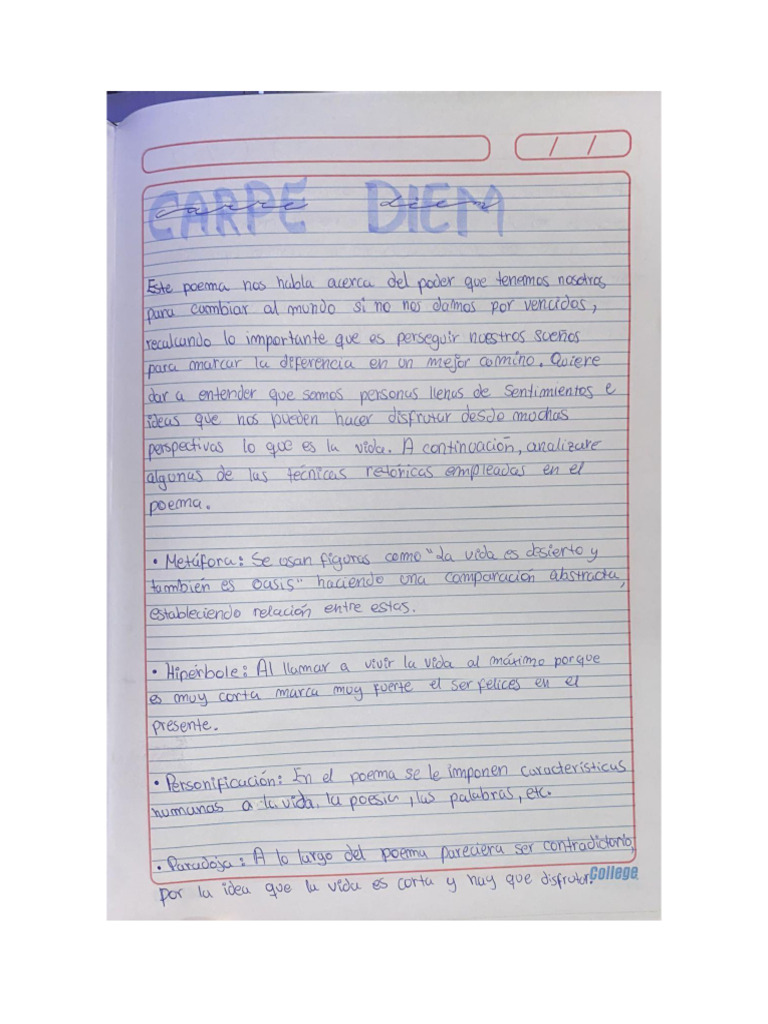 CARPE DIEM
carpe diem
/ /
Este poema nos habla acerca del poder que tenemos nosotros
para cambiar al mundo si no nos damos por vencidos,
recalcando lo importante que es perseguir nuestros sueños
para marcar la diferencia en un mejor camino. Quiere
dar a entender que somos personas llenas de sentimientos e
ideas que nos pueden hacer disfrutar desde muchas
perspectivas lo que es la vida. A continuación, analizare
algunas de las técnicas retóricas empleadas en el
poema.
• Metáfora: Se usan figuras como "La vida es desierto y
también es oasis" haciendo una comparación abstracta,
estableciendo relación entre estas.
• Hipérbole: Al llamar a vivir la vida al máximo porque
es muy corta marca muy fuerte el ser felices en el
presente.
• Personificación: En el poema se le imponen características
humanas a la vida, la poesia, las palabras, etc.
• Paradoja: A lo largo del poema pareciera ser contradictorio,
por la idea que la vida es corta y hay que disfrutar.
College